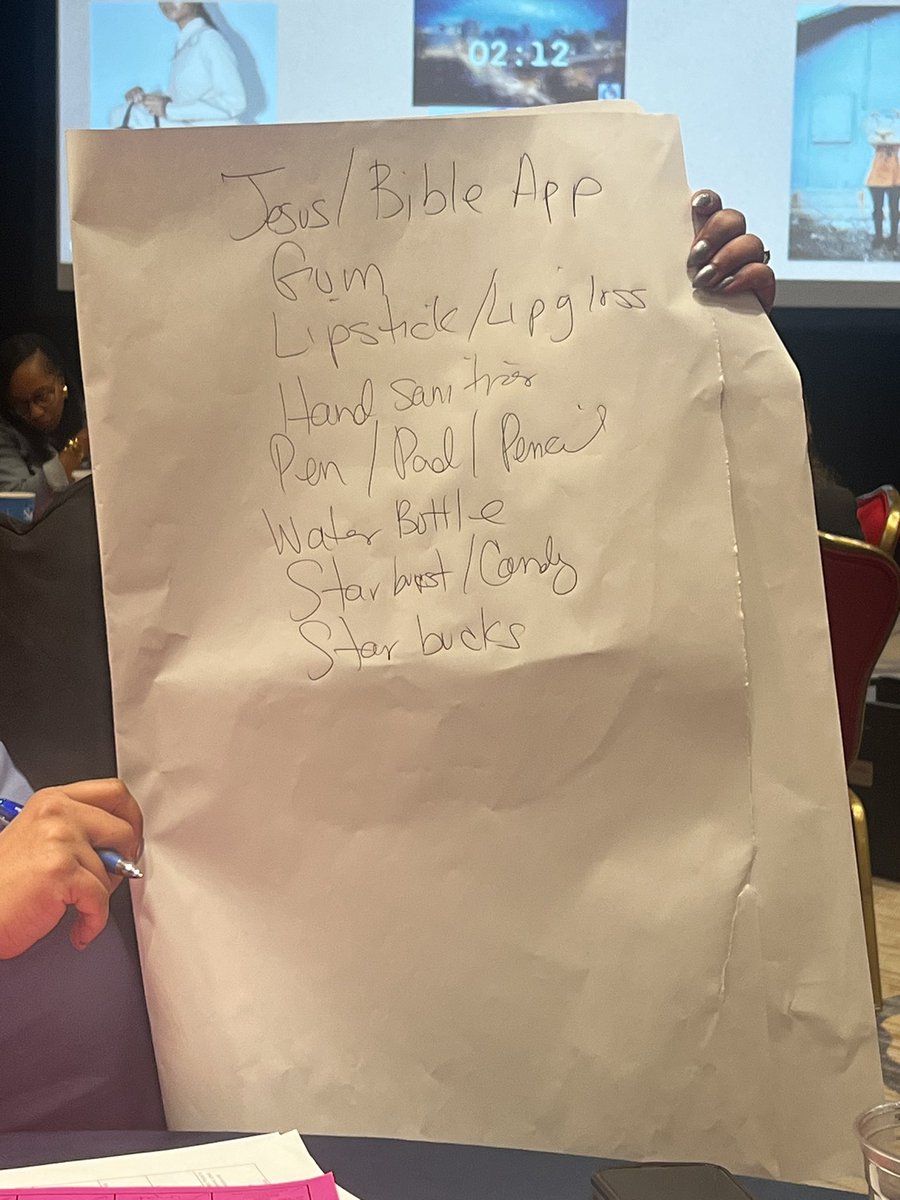 02:12
Jesus/Bible App
Gum
Lipstick/Lipgloss
Hand sanitizer
Pen/Pad/Pencil
Water Bottle
Starburst/Candy
Starbucks